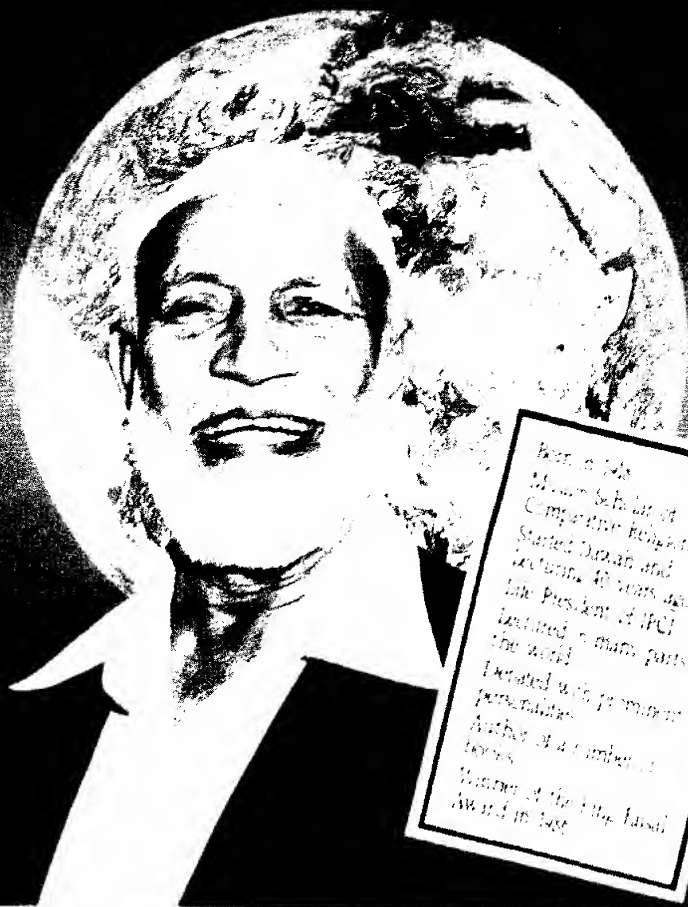 Born in
Muslim Scholar of
Comparative Religion
Started Dawah and
lecturing 40 years ago
Life President of IPCI
Lectured in many parts
the world
Debated with prominent
personalities
Author of a number of
books
Winner of the King Faisal
Award in